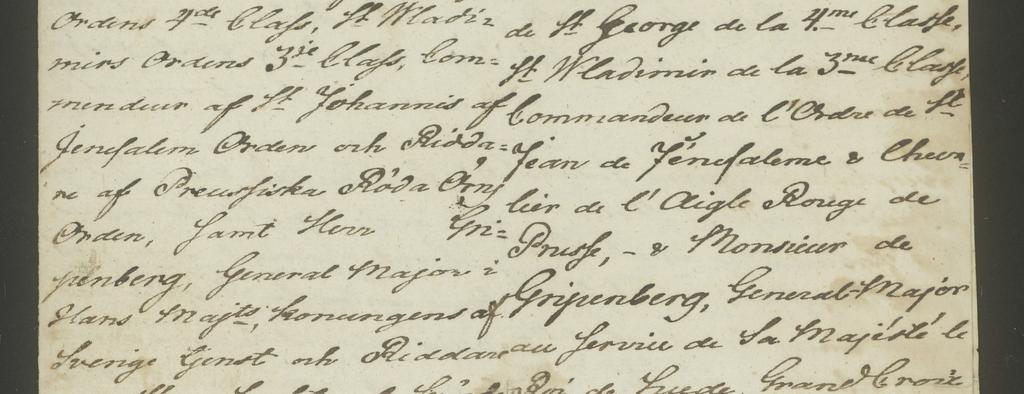 Ordens 4de Class, St Wladi=
mirs Ordens 3ie Class, Com=
mendeur af St Johannis af
Jerusalem Orden och Ridda=
re af Preussiska Röda Örns
Orden, samt Herr Gri=
penberg, General Major i
Hans Majts, Konungens af
Sverige tjenst och Riddare
de St George de la 4me Classe,
St Wladimir de la 3me Classe,
Commandeur de l'Ordre de St
Jean de Jérusaleme & Cheva=
lier de l'Aigle Rouge de
Prusse, - & Monsieur de
Gripenberg, General-Major
au Service de Sa Majésté le
Roi de Suede, Grand Croix